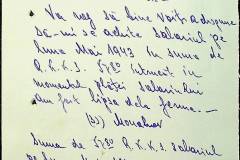 Vă rog să bine voiți a dispune
să-mi se achite salariul pe
luna Mai 1943 în suma de
R.K.K.S. 578⁰ întrucât în
momentul plății salariilor
am fost lipsă dela ferma. —
(ss) Monahov
Suma de 578⁰ R.K.K.S. salariul